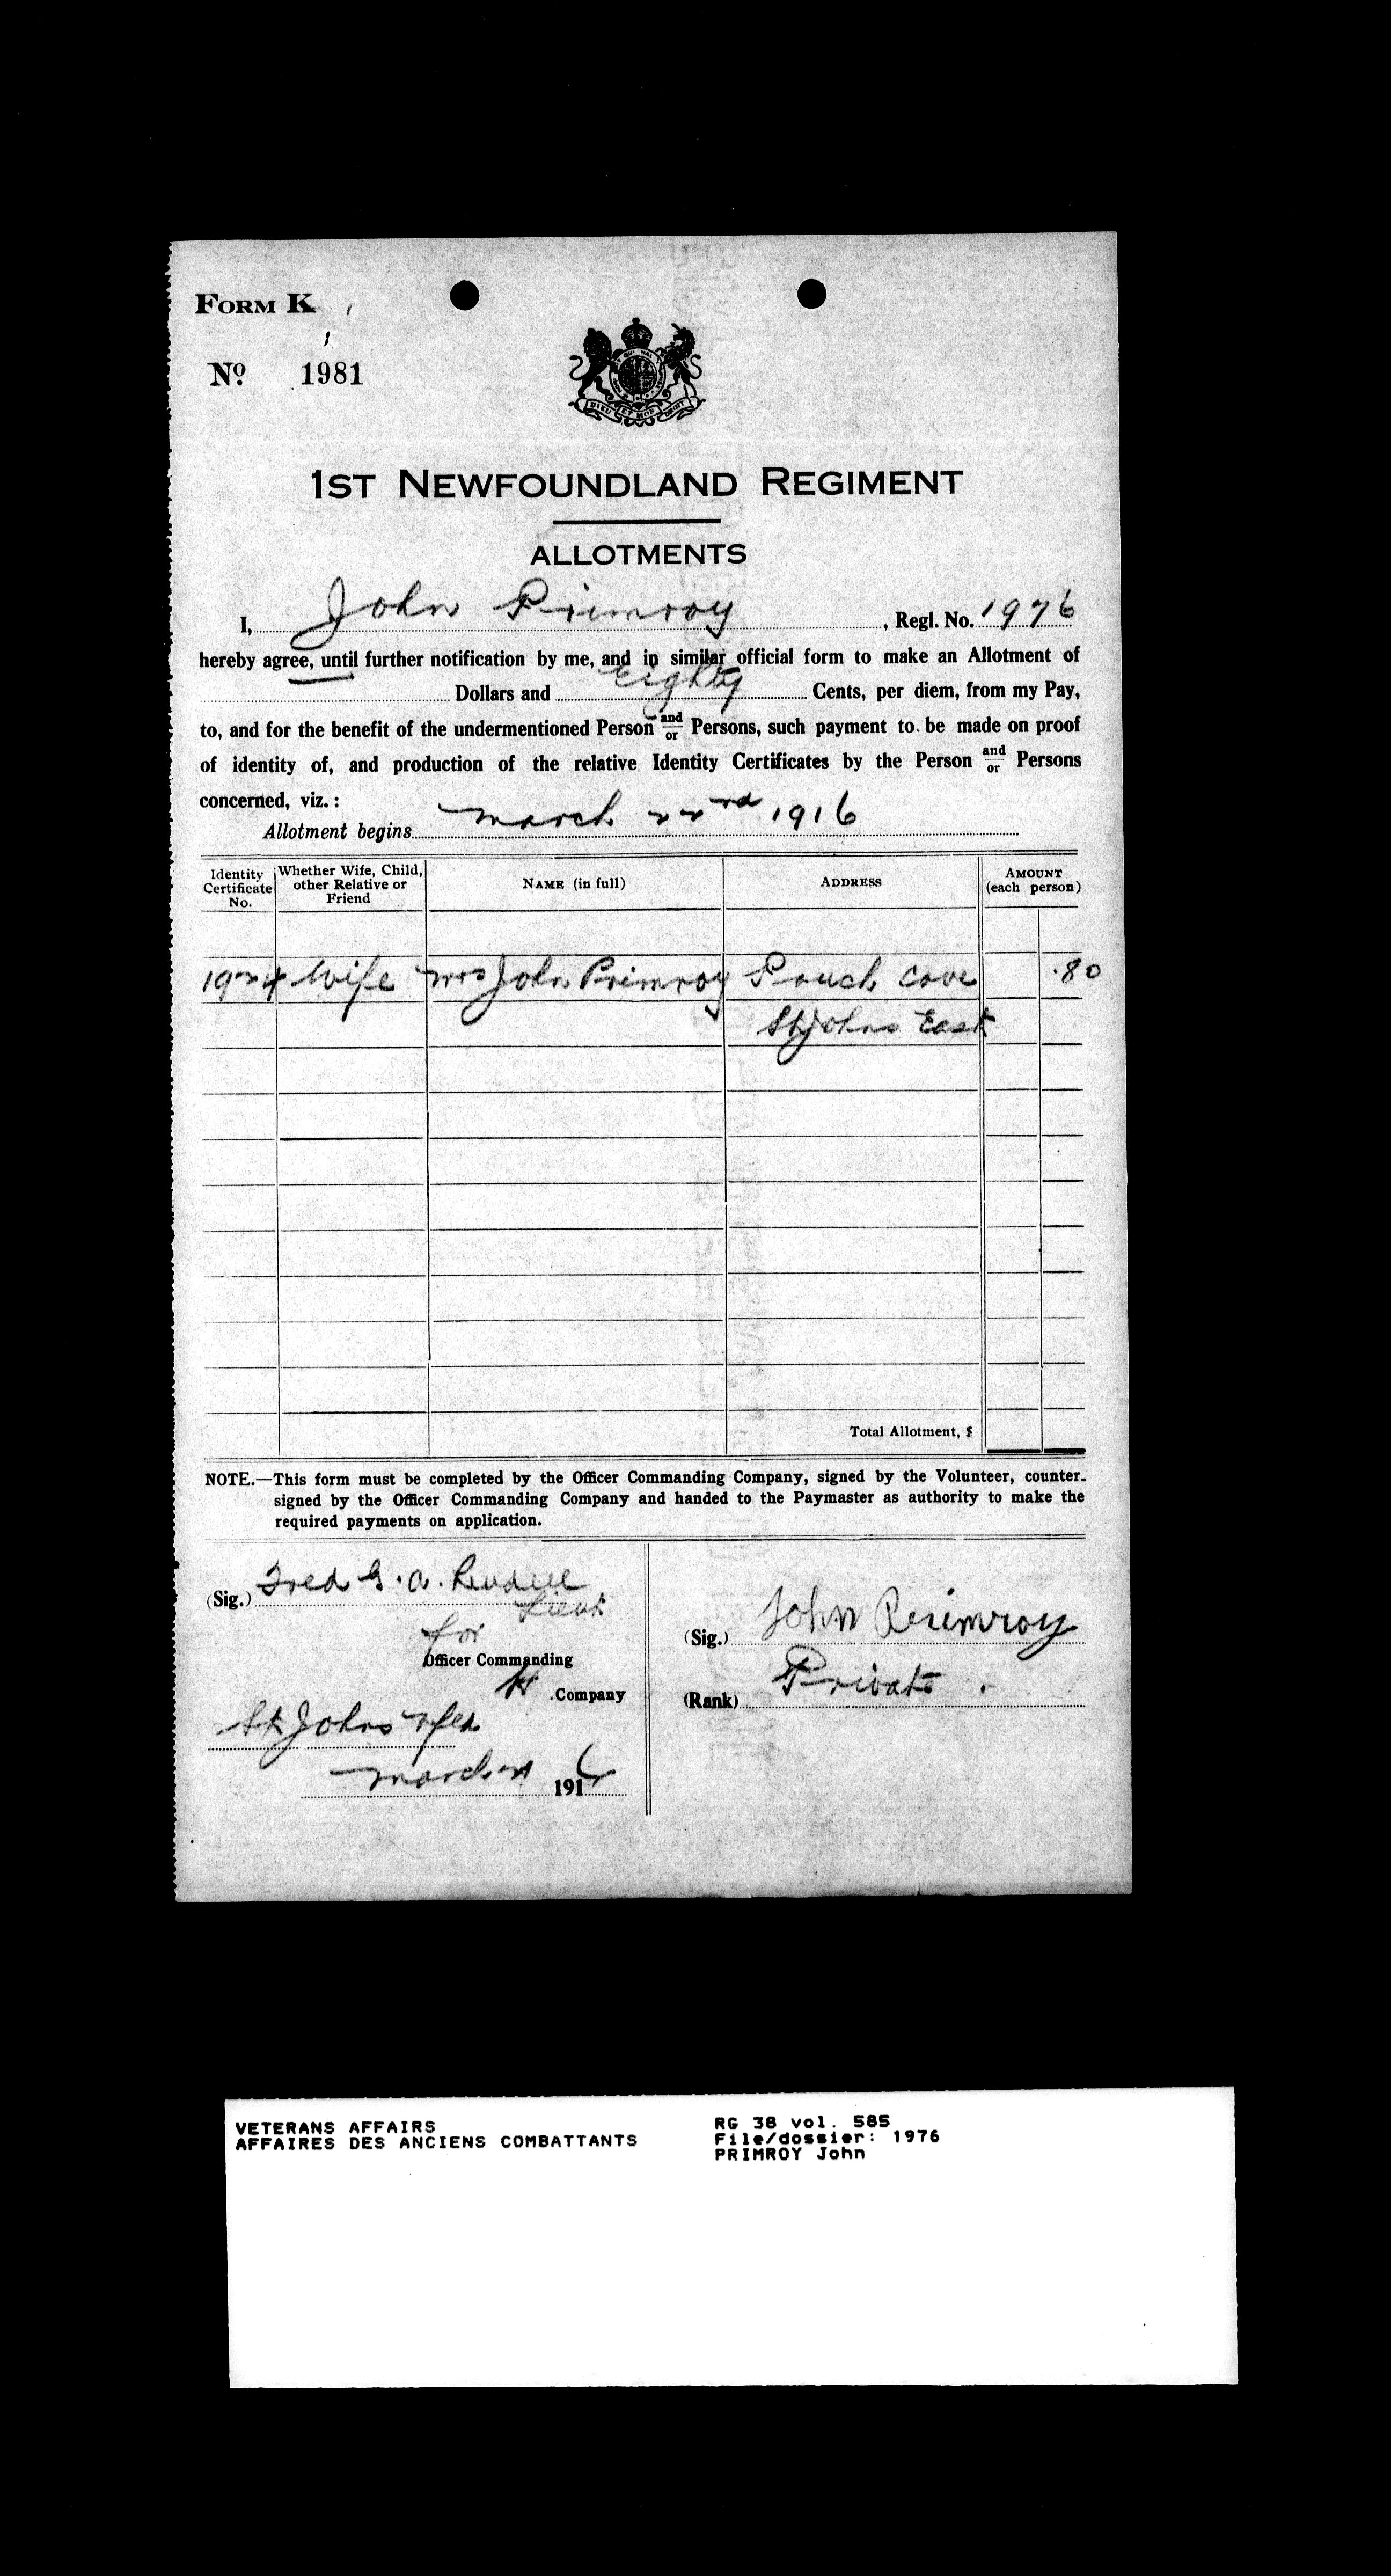 FORM K
No. 1981
DIEU ET MON DROIT
1ST NEWFOUNDLAND REGIMENT
ALLOTMENTS
I, John Primroy, Regl. No. 1976
hereby agree, until further notification by me, and in similar official form to make an Allotment of
Dollars and Eighty Cents, per diem, from my Pay,
to, and for the benefit of the undermentioned Person and/or Persons, such payment to be made on proof
of identity of, and production of the relative Identity Certificates by the Person and/or Persons
concerned, viz.:
Allotment begins March 22nd 1916
Identity Certificate No. Whether Wife, Child, other Relative or Friend NAME (in full) ADDRESS AMOUNT (each person)
Wife Mrs John Primroy Pouch Cove .80
St Johns East
Total Allotment, $
NOTE.—This form must be completed by the Officer Commanding Company, signed by the Volunteer, counter-
signed by the Officer Commanding Company and handed to the Paymaster as authority to make the
required payments on application.
(Sig.) Fred G. A.
Lieut
for
Officer Commanding
H Company
St Johns Nfld
March 1916
(Sig.) John Primroy
(Rank) Private.
VETERANS AFFAIRS
AFFAIRES DES ANCIENS COMBATTANTS
RG 38 vol. 585
File/dossier: 1976
PRIMROY John